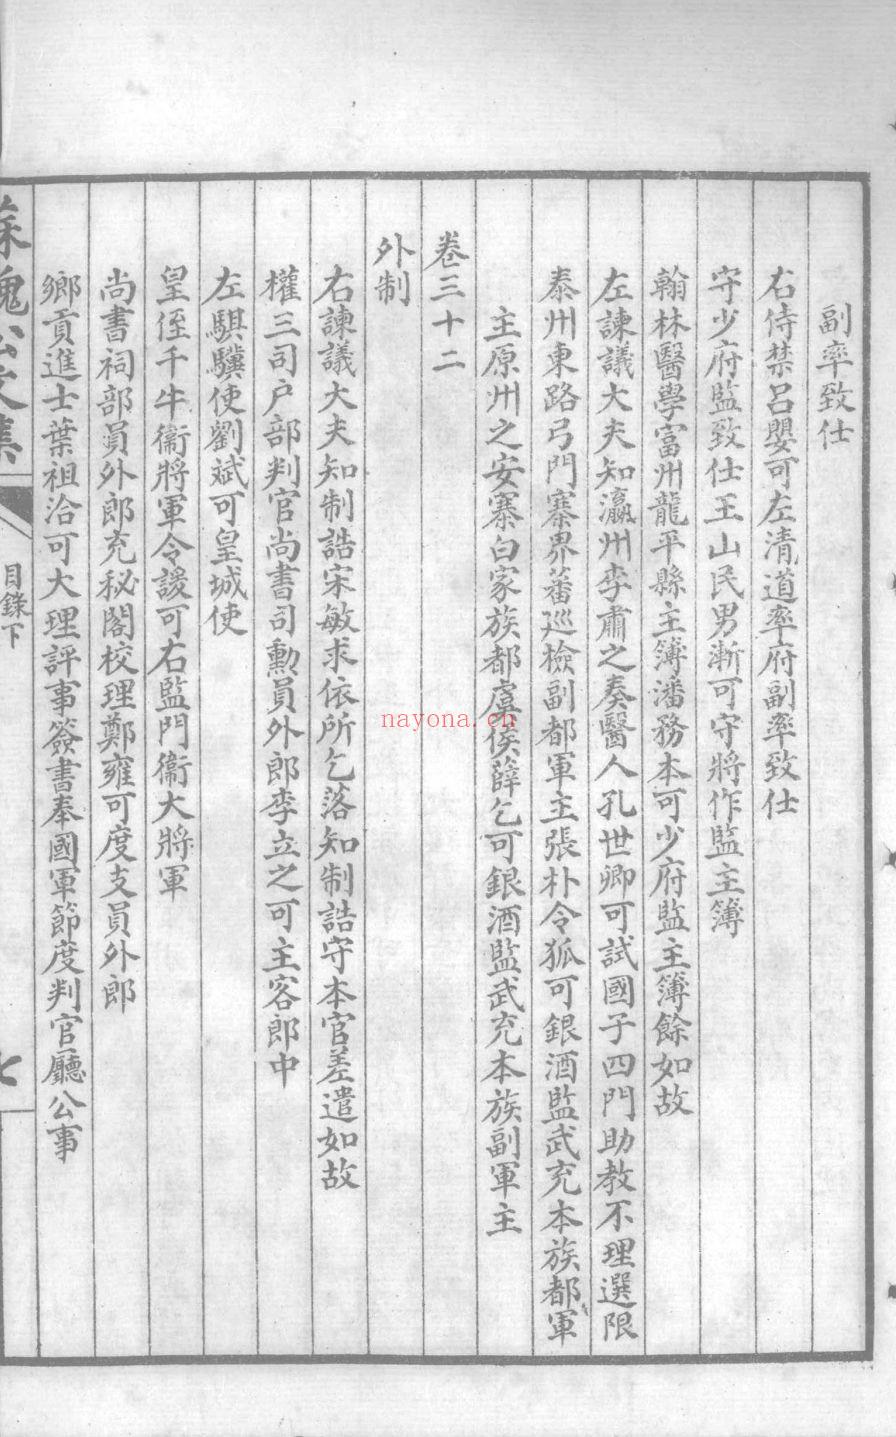 副率致仕
右侍禁呂嬰可左清道率府副率致仕
守少府監致仕王山民男漸可守將作監主簿
翰林醫學富州龍平縣主簿潘務本可少府監主簿餘如故
左諫議大夫知瀛州李肅之奏醫人孔世卿可試國子四門助教不理選限
泰州東路弓門寨界蕃巡檢副都軍主張朴令狐可銀酒監武充本族都軍
主原州之安寨白家族都虞侯薛乞可銀酒監武充本族副軍主
卷三十二
外制
右諫議大夫知制誥宋敏求依所乞落知制誥守本官差遣如故
權三司户部判官尚書司勳員外郎李立之可主客郎中
左騏驥使劉斌可皇城使
皇侄千牛衞將軍令諼可右監門衞大將軍
尚書祠部員外郎充秘閣校理鄭雍可度支員外郎
鄉貢進士葉祖洽可大理評事簽書奉國軍節度判官廳公事
蘇魏公文集
目錄下
七
nayona.cn